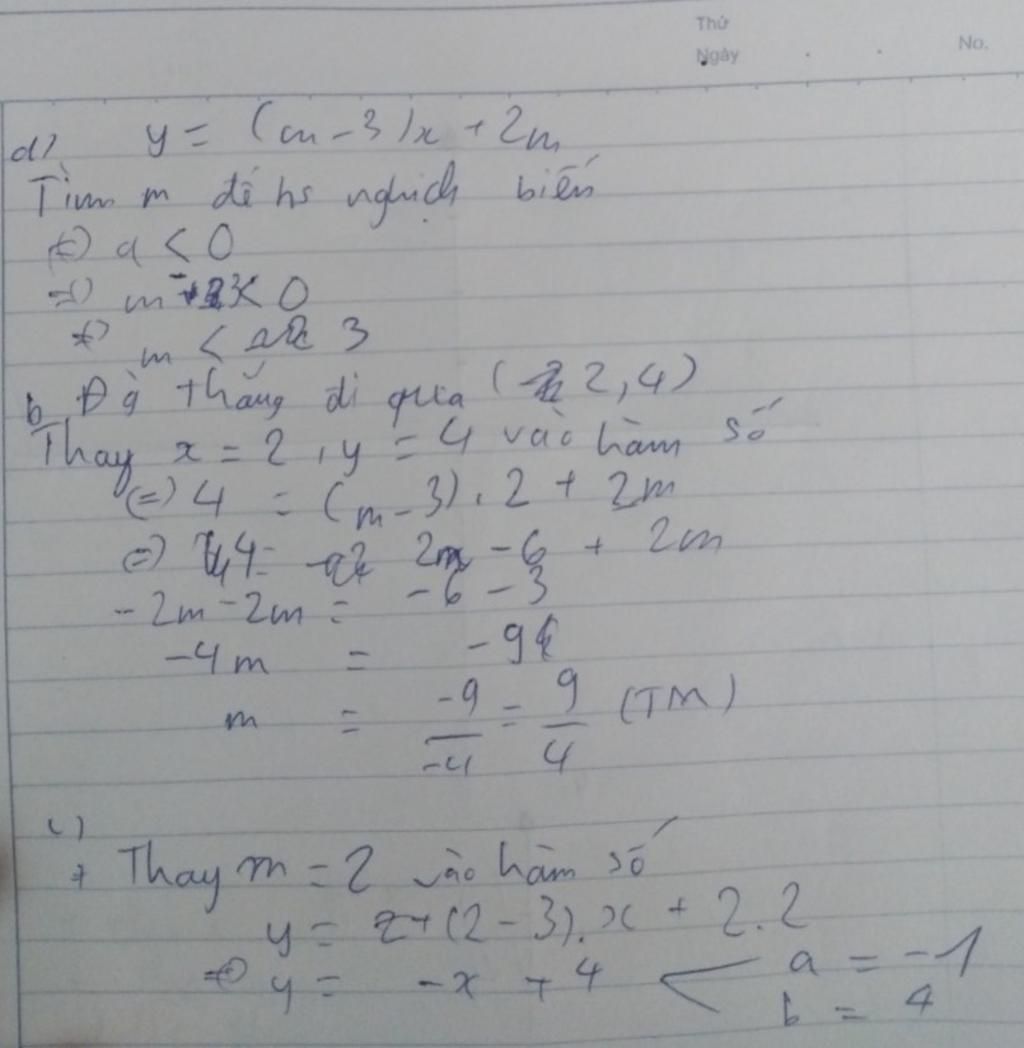 Thứ
Ngày
No.
a) y = (m - 3)x + 2m
Tìm m để hs nghịch biến
(=) a < 0
=) m - 3 < 0
m < 3
b Đg thẳng đi qua (2, 4)
Thay x = 2, y = 4 vào hàm số
(=) 4 = (m - 3). 2 + 2m
=) 4 = 2m - 6 + 2m
- 2m - 2m = - 6 - 3
- 4m = - 9
m = -9/-4 = 9/4 (TM)
c)
+ Thay m = 2 vào hàm số
y = (2 - 3). x + 2.2
y = - x + 4 a = -1
b = 4